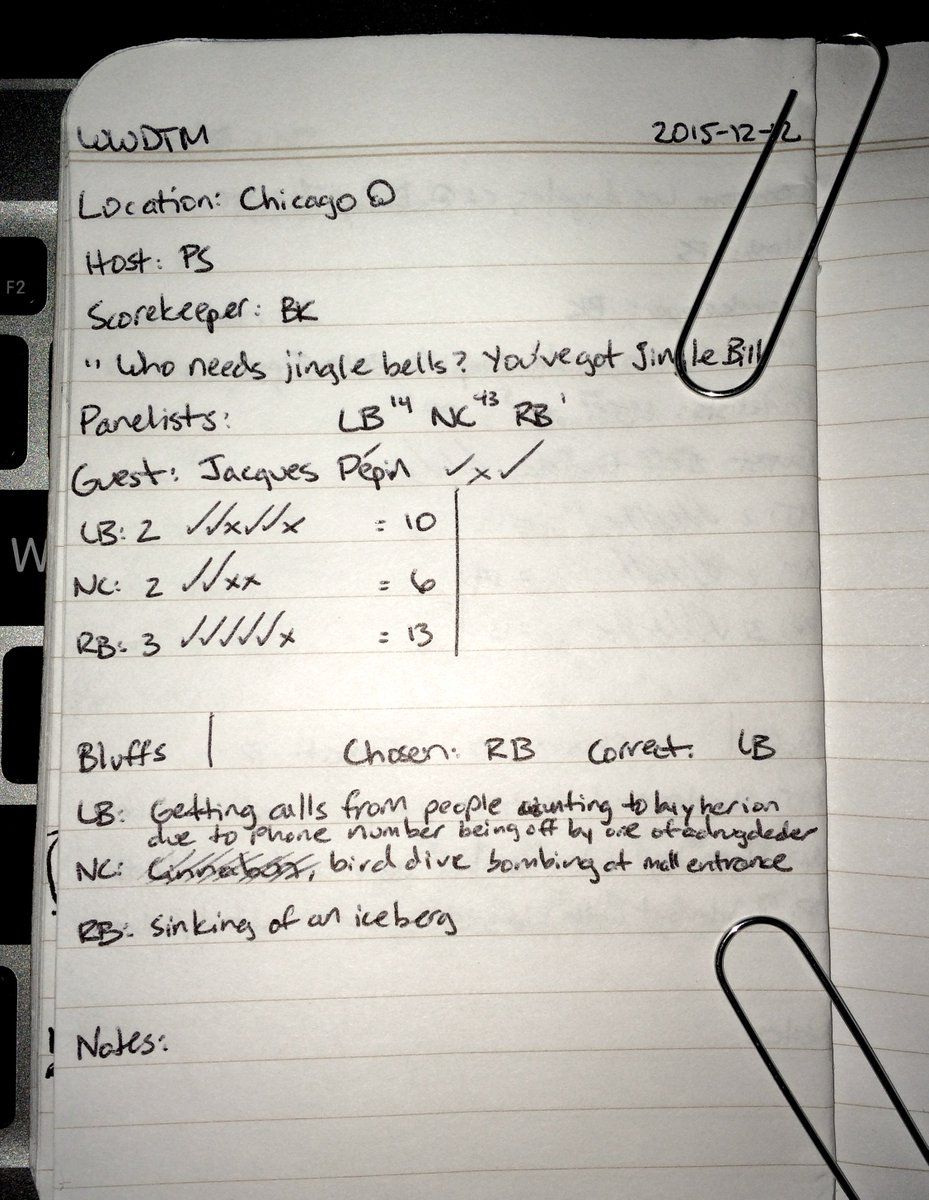 WWDTM 2015-12-12
Location: Chicago
Host: PS
Scorekeeper: BK
" Who needs jingle bells? You've got Jingle Bill
Panelists: LB 14 NC 43 RB 1
Guest: Jacques Pépin ✓x✓
LB: 2 ✓✓x✓✓x = 10
NC: 2 ✓✓xx = 6
RB: 3 ✓✓✓✓✓x = 13
Bluffs Chosen: RB Correct: LB
LB: Getting calls from people wanting to buy herion
due to phone number being off by one of a drug dealer
NC: bird dive bombing at mall entrance
RB: Sinking of an iceberg
Notes:
F2
W